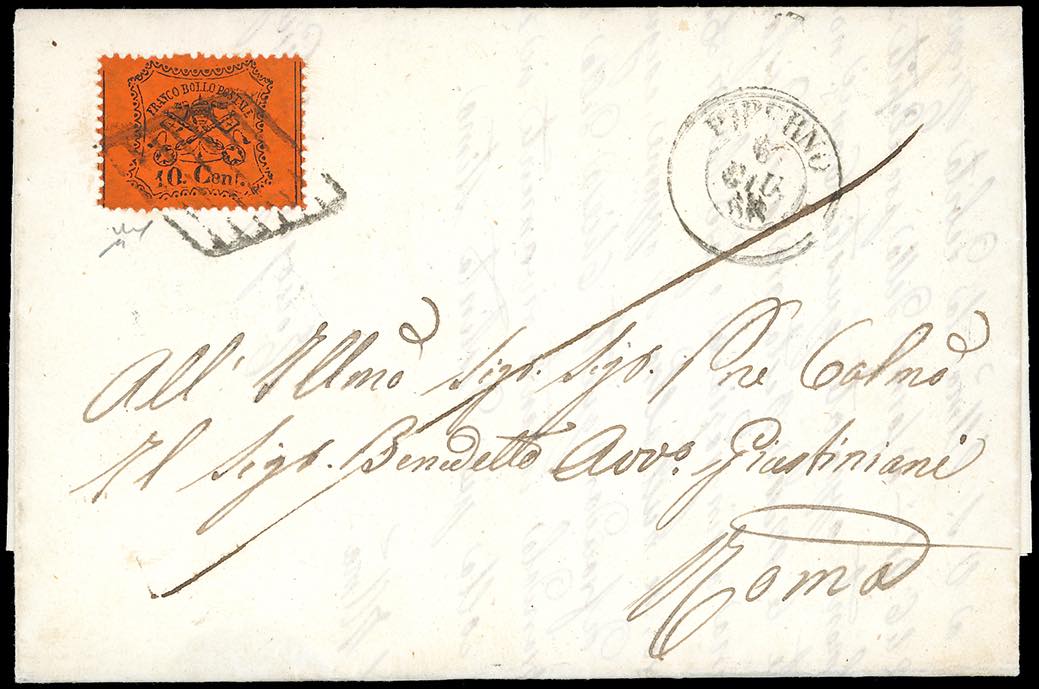 FRANCO BOLLO POSTALE
10. Cent.
PIPERNO
6
GIU
68
All' Illmo Sigr. Sigr. Pne Colmo
Il Sigr. Benedetto Avvo. Giustiniani
Roma